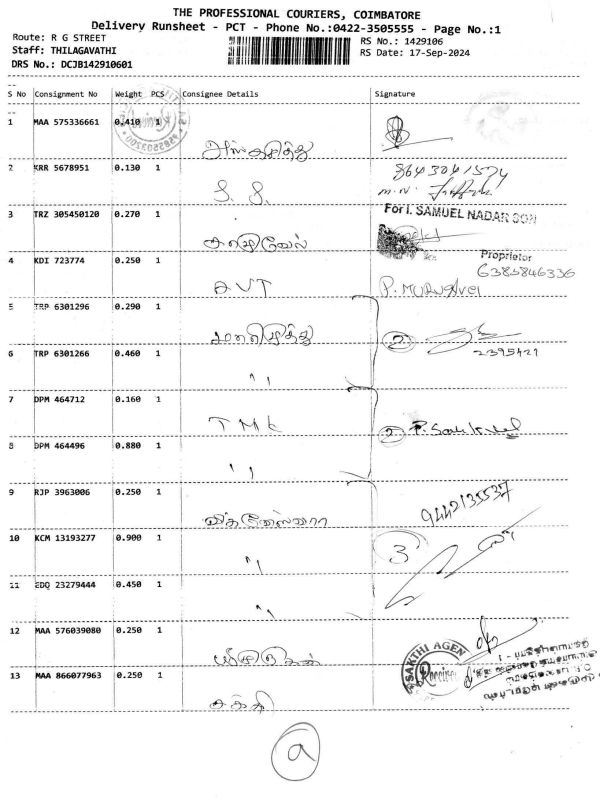 THE PROFESSIONAL COURIERS, COIMBATORE
Delivery Runsheet - PCT - Phone No.:0422-3505555 - Page No.:1
Route: R G STREET
RS No.: 1429106
Staff: THILAGAVATHI
RS Date: 17-Sep-2024
DRS No.: DCJB142910601
S No Consignment No Weight PCS Consignee Details Signature
1 MAA 575336661 0.410 1
2 KRR 5678951 0.130 1
3 TRZ 305450120 0.270 1
For I. SAMUEL NADAR SON
Proprietor
4 KDI 723774 0.250 1
6385846336
AVT P. MURUGAVEL
5 TRP 6301296 0.290 1
முனிமுத்து 2
2395421
6 TRP 6301266 0.460 1
"
7 DPM 464712 0.160 1
TMK 2 P. Sakthivel
8 DPM 464496 0.880 1
"
9 RJP 3963006 0.250 1
9442135537
10 KCM 13193277 0.900 1
" 3
11 EDQ 23279444 0.450 1
"
12 MAA 576039080 0.250 1
SAKTHI AGEN
Received
13 MAA 866077963 0.250 1
சக்தி
a